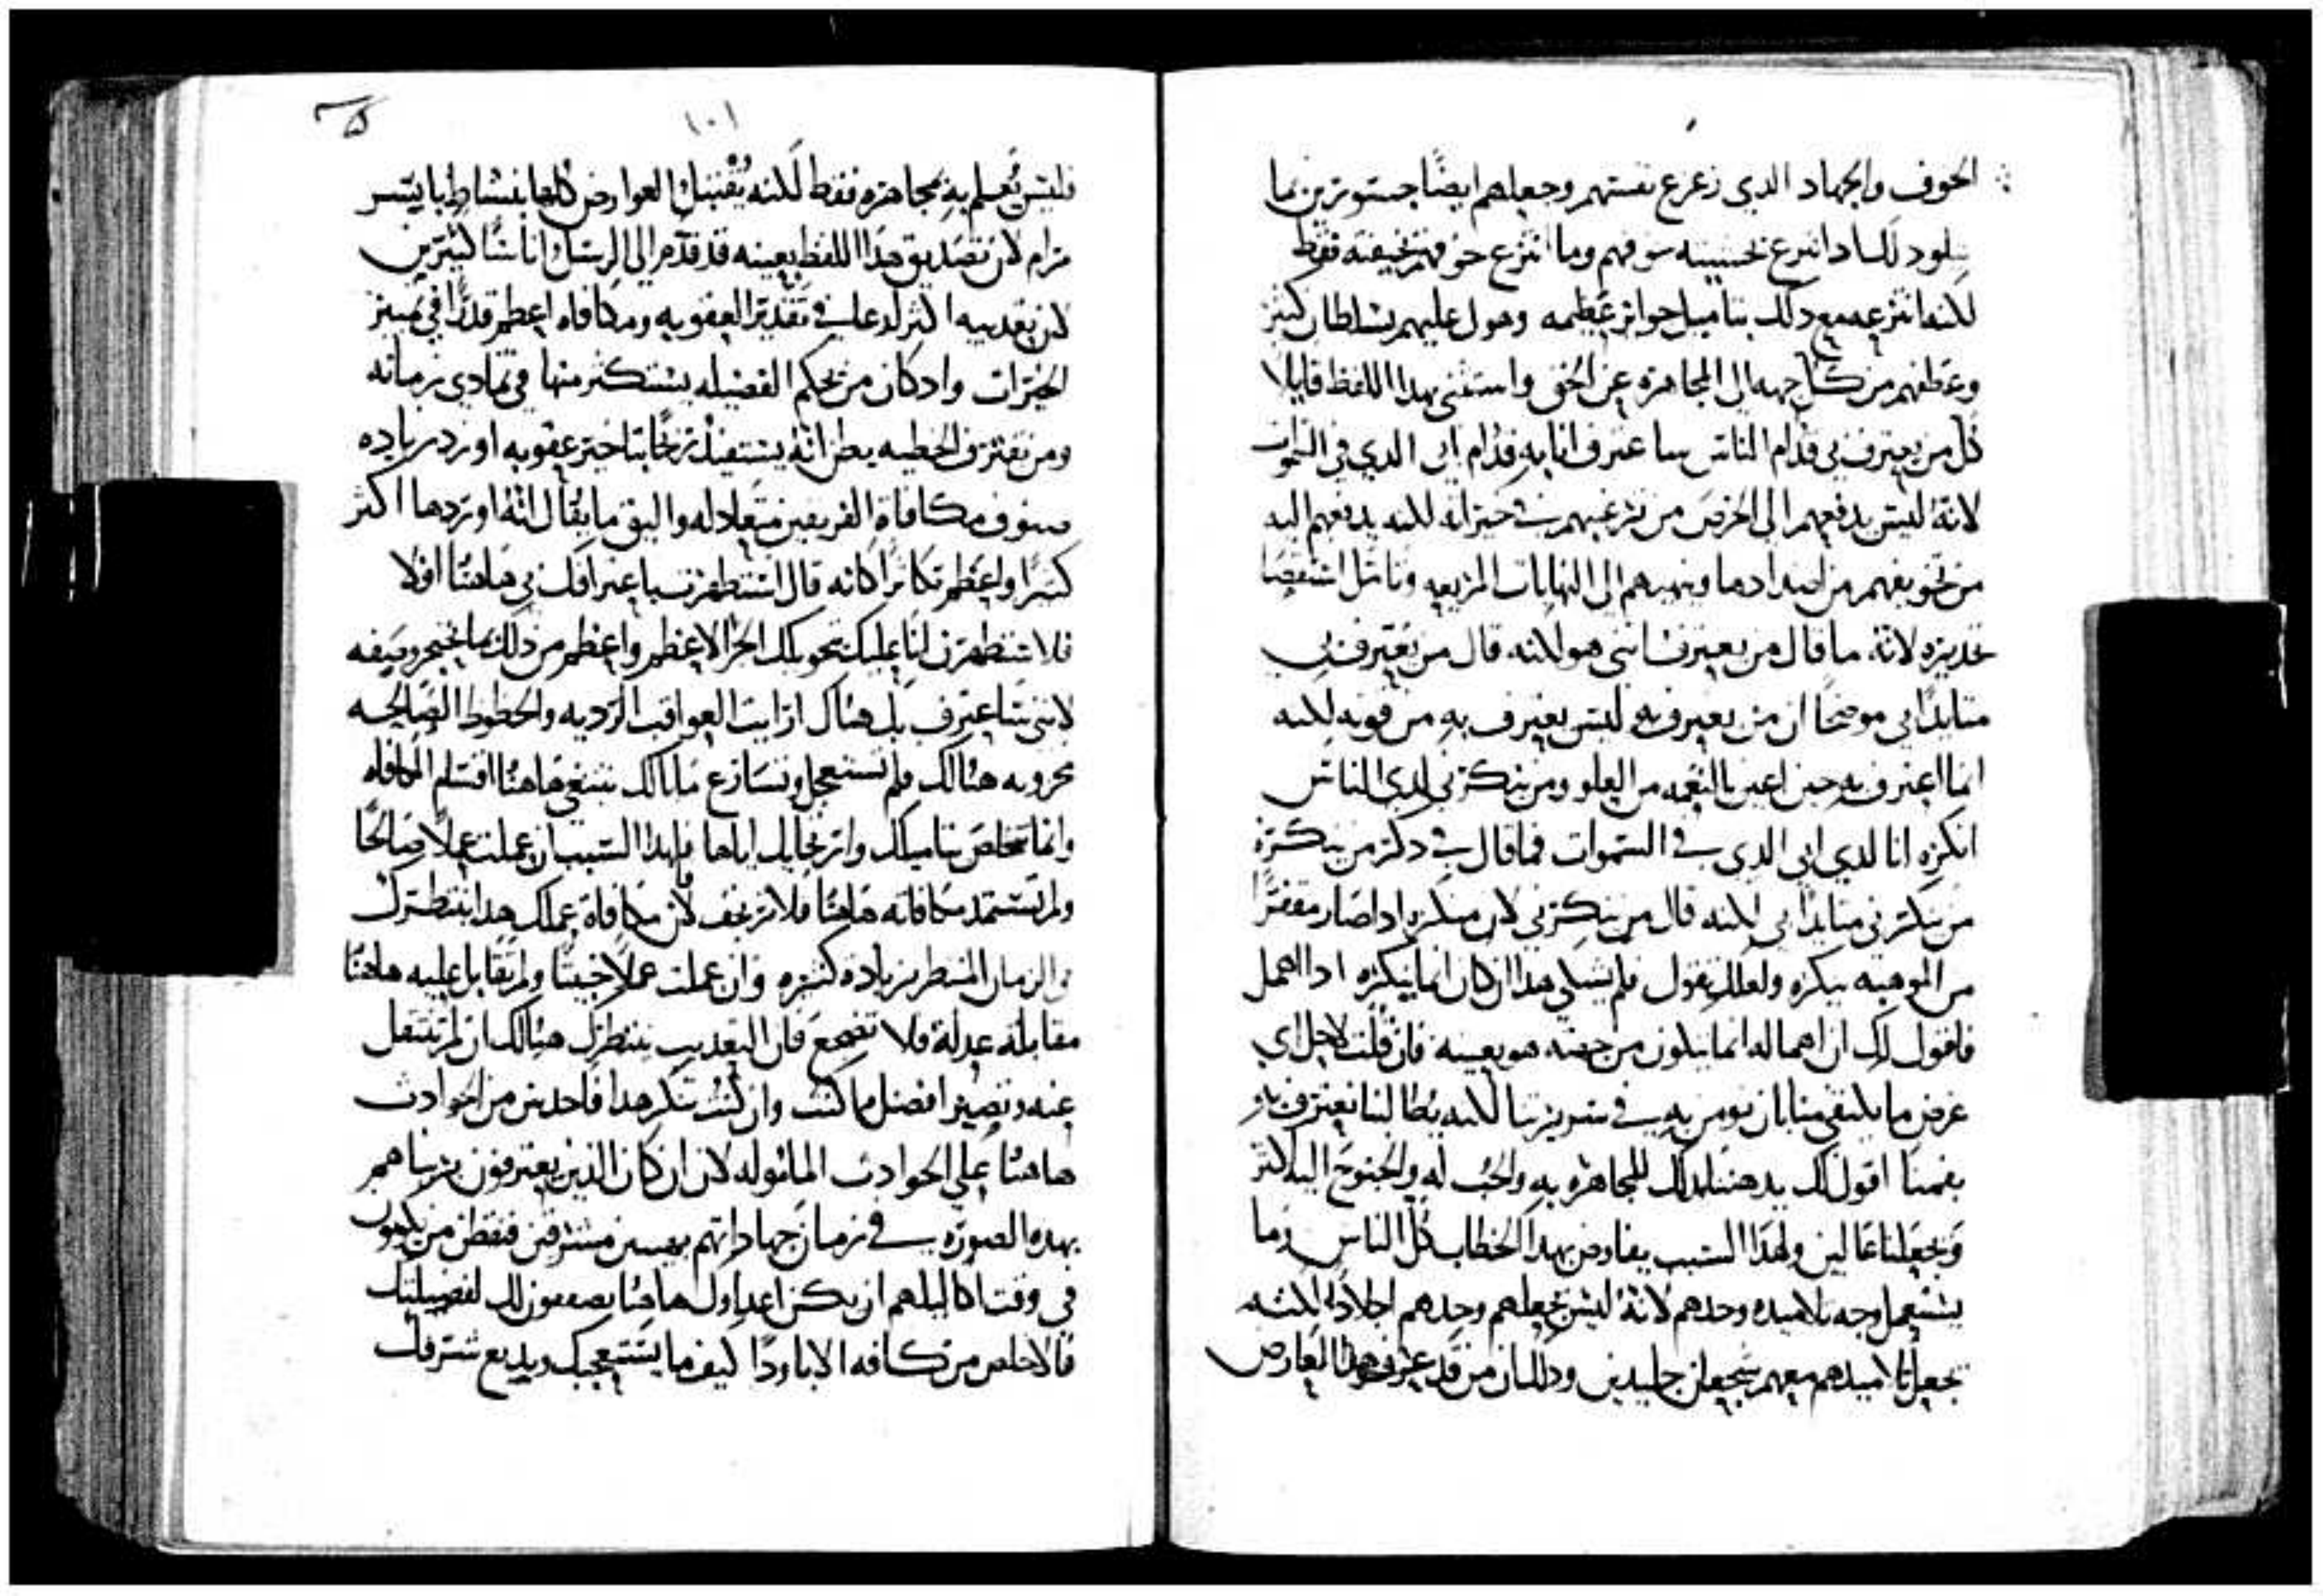 الخوف والجهاد الدي زعزع نفستهم وجعلهم ايضًا جستورين بما
يتلود لك اد انتزع بخسيسه خوفهم وما انتزع خوفهم بخيفته فقط
لكنه انتزعه مع دلك بتاميل جوايز عظيمه وهول عليهم بسلطان كثير
وعطفهم من كل جهه الي المجاهره عن الحق واستثني بهدا اللفظ قايلا
كل من يعترف بي قدام الناس ساعترف انا به قدام ابي الدي في السموات
لانهُ ليس يدفعهم الى الحرص من ترغيبهم في خيراته لكنه يدفعهم اليه
من تخويفهم من اضدادها وينهيهم الى النهايات المريعه وتامل استقصا
تحديره لانهُ ما قال من يعترف انني هو لكنه قال من يعترف بي
متايدًا بي موضحًا ان من يعترف به ليس يعترف به من قوته لكنه
انما اعترف به حين اعين بالنعمه من العلو ومن ينكرني لدي الناس
انكره انا لدي ابي الدي في السموات فما قال في دكر من ينكره
من ينكرني متايدًا بي لكنه قال من ينكرني لان منكره ادا صار مقفرًا
من الموهبه ينكره ولعلك تقول فلم يشكي هدا ان كان انما ينكره ادا اهمل
فاقول لك ان اهماله انما يتلون من جهته هو بعينه فان قلت لاجل اي
غرض ما يكتفي منا بان نومن به في سريرتنا لكنه يطالبنا نعترف به
بفمنا اقول لك يدهننا لدلك للمجاهره به والحب له والجنوح اليه اكثر
ويجعلنا عالين ولهدا السبب يفاوض بهدا الخطاب كل الناس وما
يستعمل وجه تلاميده وحدهم لانهُ ليس يجعلهم وحدهم اجلادا لكنه
يجعل تلاميدهم معهم شجعان جليدين ودلك ان من قد عرف هدا العارض
١٠١
فليس يُعلم به مجاهره فقط لكنه يُقتبل العوارض كلها بنشاط بايسر
مرام لان تصديق هدا اللفظ بعينه قد قدم الي الرسل اناسًا كثيرين
لان تعديبه اكثر لدعا في تقدير العقوبه ومكافاه اعظم قدرًا في تمييز
الخيرات واد كان من يحكم الفضيله يستكثر منها في تمادي زمانه
ومن يقترف الخطيه يظن انهُ يستفيد ربحًا بتاخير عقوبه اورد زياده
صنوف مكافاة الفريقين متعادله واليق ما يقال انهُ اوردها اكثر
كثيرًا واعظم تكاثرًا كانه قال استظهرت باعترافك بي هاهنا اولا
فلا تستظهرن لنا عليك تحويلك اجرًا لاعظم واعظم من دلك بما لا يجوز وصفه
لانني ساعترف بك هناك ارايت العواقب الرديه والحظوظ الصالحه
محزونه هنالك فلم تستعجل وتسارع مالك تبتغي هاهنا اقتسام المكافاه
وانما تخلص بتاميلك وارتجايك اياها فلهدا السبب ان عملت عملًا صالحًا
ولم تستمد مكافاته هاهنا فلا ترتجف لان مكافاة عملك هدا تنتظرك
في الزمان المنتظر بزياده كثيره وان عملت عملًا خبيثًا ولم تقابل عليه هاهنا
مقابله عدله فلا تضجع فان التعديب ينتظرك هنالك ان لم تنتقل
عنه وتصير افضل ما كنت وان كنت تنكر هدا فاحدس من الحوادث
هاهنا علي الحوادث المامُوله لان ان كان الذين يعترفون بربنا هم
بهده الصوره في زمان جهاداتهم بهيين مشرقين فتفطن من يكون
في وقت اكاليلهم ان يكن اعداوك هاهنا يصفقون لك لفضيلتك
فالاخلص من كافه الابا ودًا كيف ما يستعجبك ويديع شرفك